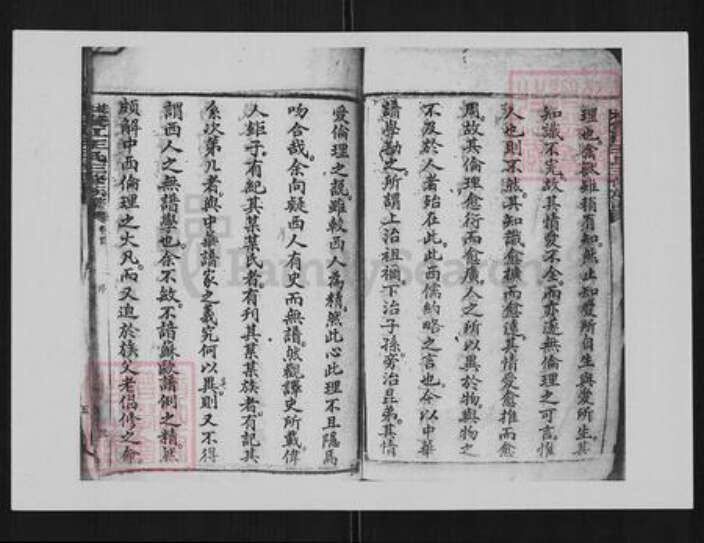 理也禽獸雖稍有知然止知愛所自生與愛所生其
知識不完故其情愛不全而亦遂無倫理之可言惟
人也則不然其知識愈擴而愈遠其情愛愈推而愈
周故其倫理愈衍而愈廣人之所以異於物與物之
不及於人者殆在此此西儒約略之言也今以中華
譜學勘之所謂上治祖禰下治子孫旁治昆弟其情
愛倫理之說雖較西人為精然此心此理不且隱為
吻合哉余向疑西人有史而無譜然觀譯史所載偉
人鉅子有紀其某某氏者有刊其某某族者有記其
系次第几者與中華譜家之義究何以異則又不得
謂西人之無譜學也余不敏不諳蘇歐譜例之精然
頗解中西倫理之大凡而又迫於族父老倡修之命
FamilySearch